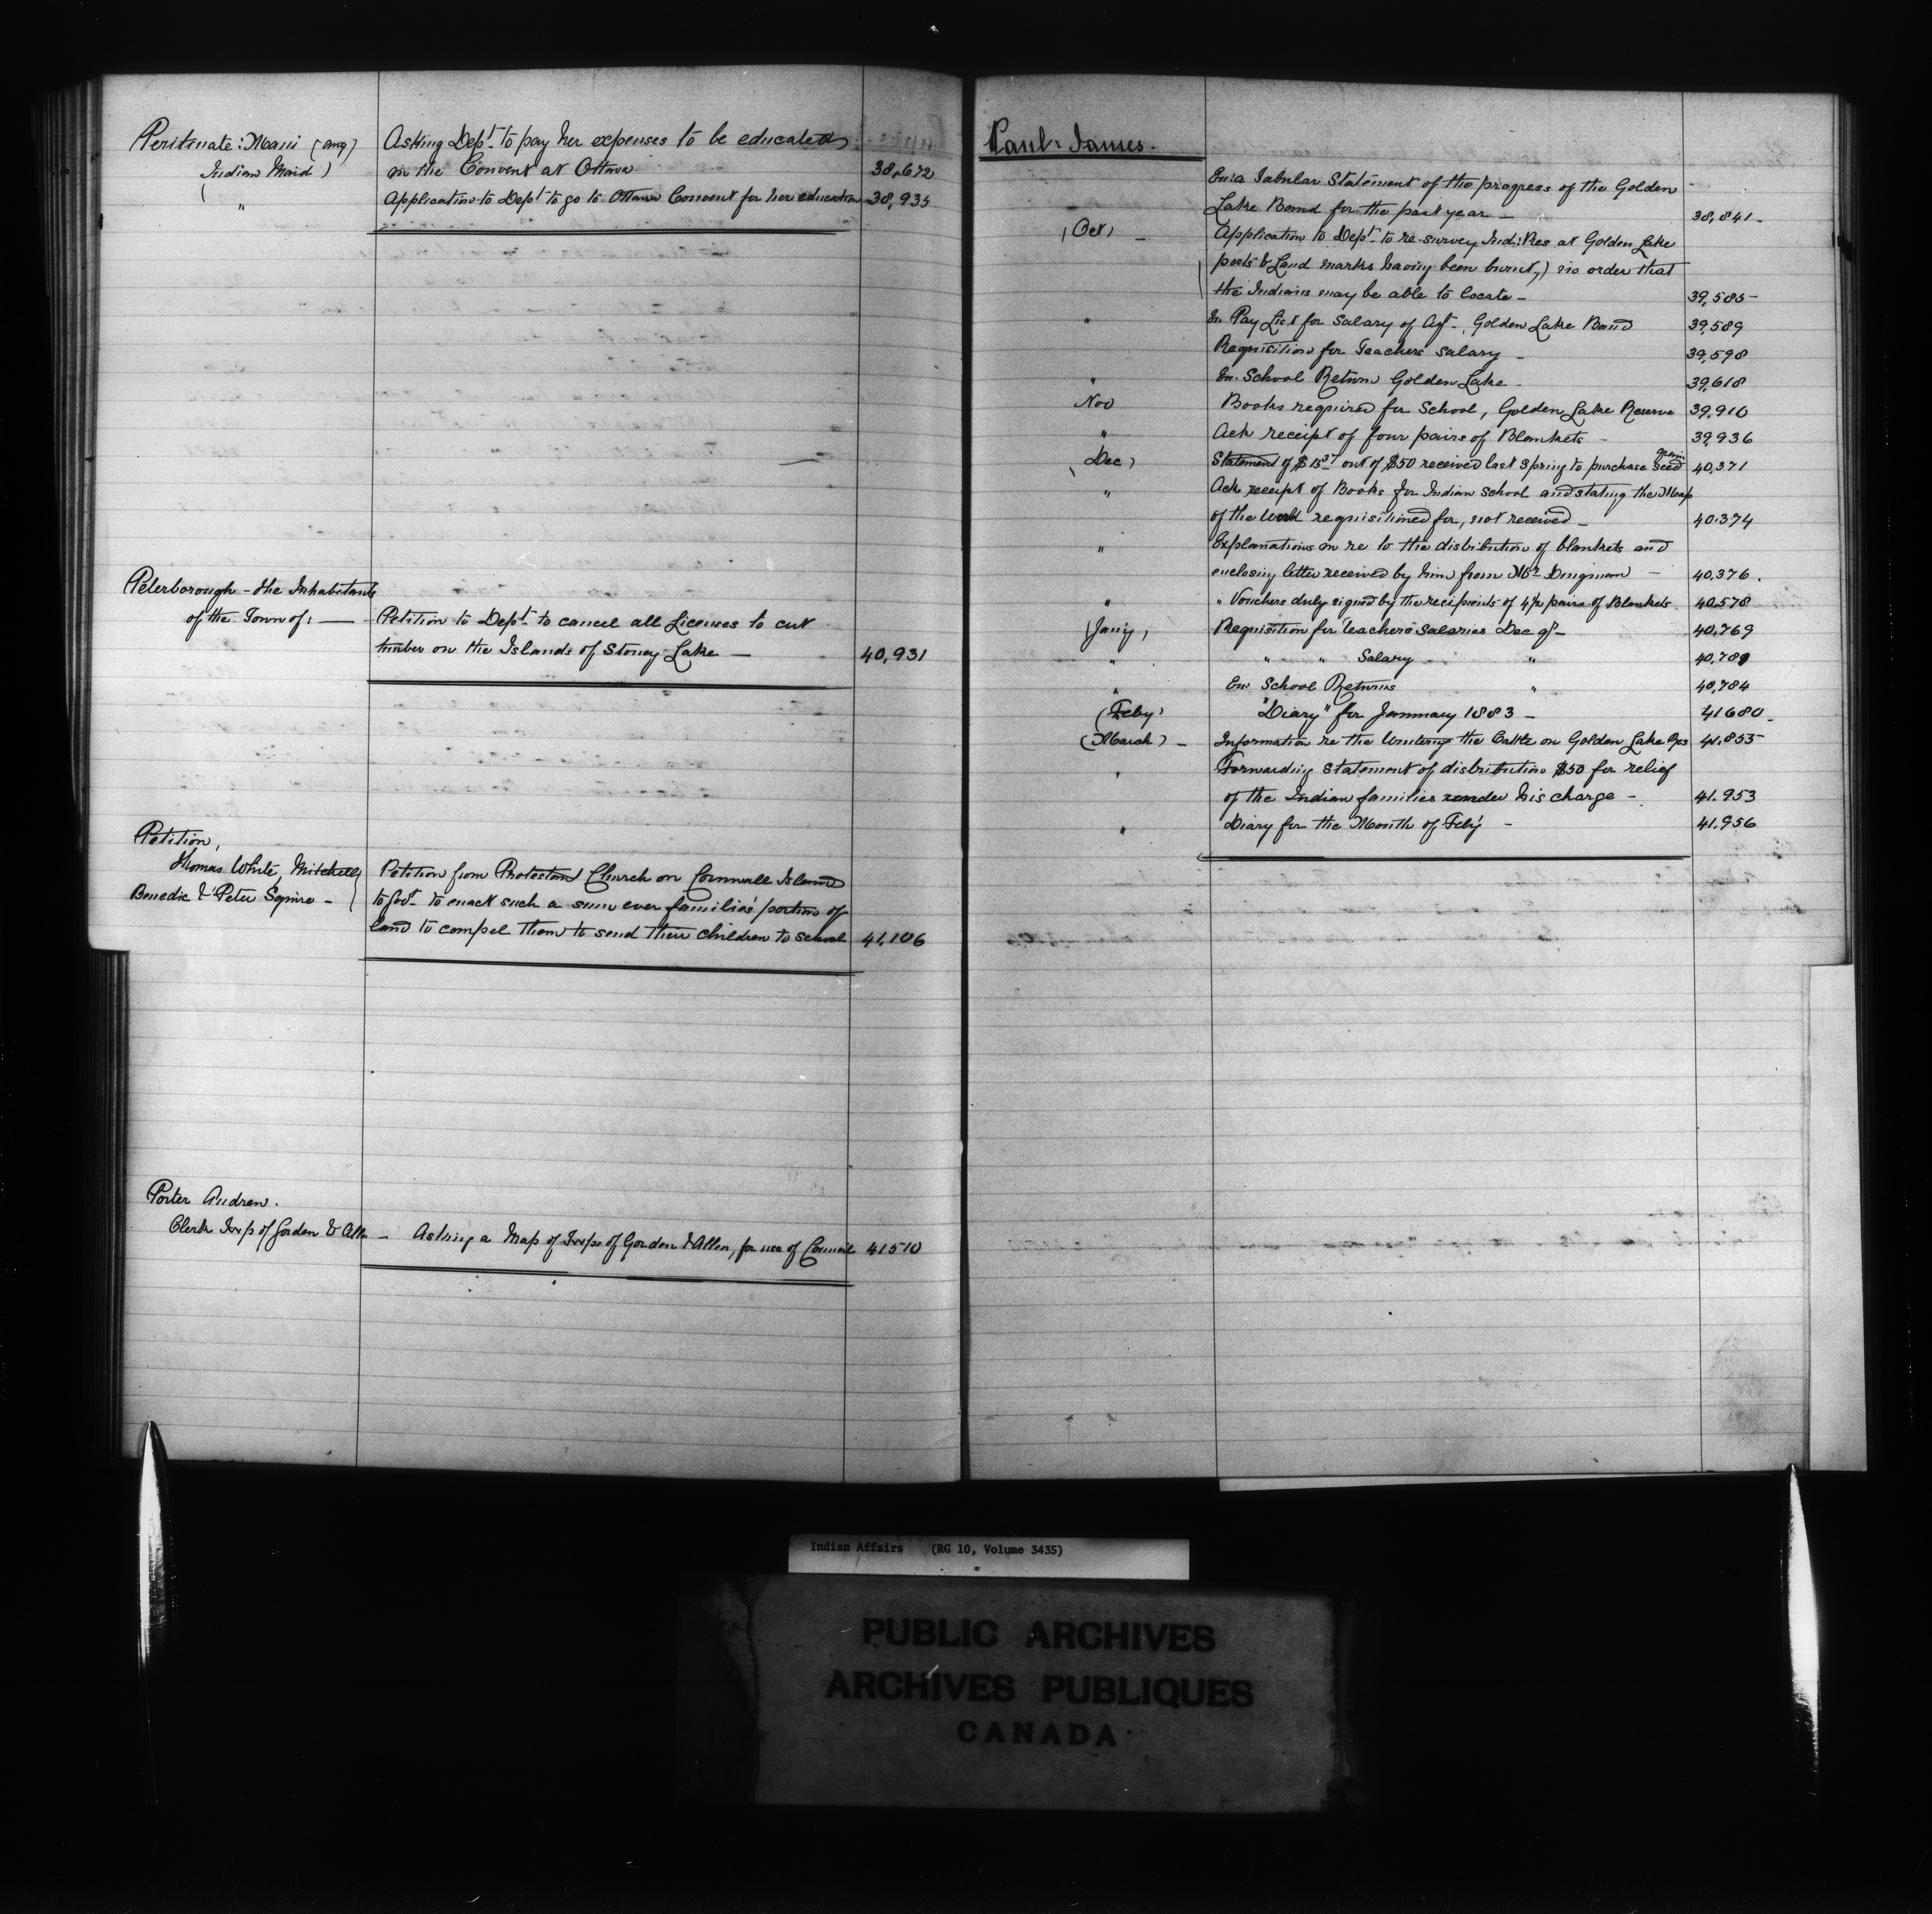 Peritnate: Mani (Aug)
Indian Maid)
( "
Asking Dept. to pay her expenses to be educated
in the Convent at Ottawa 38,672
Application to Dept to go to Ottawa Convent for her education 38,935
Peterborough - the Inhabitants
of the Town of: —
Petition to Dept. to cancel all Licenses to cut
timber on the Islands of Stoney Lake — 40,931
Petition,
Thomas White, Mitchell
Benedic & Peter Squire -
Petition from Protestant Church on Cornwall Island
to Govt. to enact such a sum over families' portion of
land to compel them to send their children to school 41,106
Porter Andrew.
Clerk Twp of Gordon & Allan —
Asking a Map of Twps of Gordon & Allen, for use of Council 41510
Paul- James.
En: a Tabular Statement of the progress of the Golden
Lake Band for the past year — 38,841-
(Oct) — Application to Dept. to re-survey Ind: Res at Golden Lake
(posts & Land marks having been burnt,) in order that
the Indians may be able to locate - 39,585-
" En. Pay List for Salary of Agt. Golden Lake Band 39,589
Requisition for Teachers Salary - 39,598
" En. School Return Golden Lake - 39,618
Nov Books required for School, Golden Lake Reserve 39,910
" Ack receipt of four pairs of Blankets - 39,936
(Dec) Statement of $15 37 out of $50 received last Spring to purchase seed 40,371
" Ack receipt of Books for Indian School and stating the Map
of the World requisitioned for, not received - 40,374
" Explanations in re to the distribution of blankets and
enclosing letter received by him from Mr Dingman — 40,376.
" " Vouchers duly signed by the recipients of 4½ pairs of Blankets 40,578
(Jany) Requisition for Teachers' Salaries Dec qr — 40,769
" " " Salary " 40,789
" En: School Returns " 40,784
(Feby) "Diary" for January 1883 — 41680-
(March) — Information re the Wintering the Cattle on Golden Lake Res 41,855
" Forwarding Statement of distribution $50 for relief
of the Indian families under his charge - 41.953
" Diary for the Month of Feby - 41.956
Indian Affairs (RG 10, Volume 3435)
PUBLIC ARCHIVES
ARCHIVES PUBLIQUES
CANADA